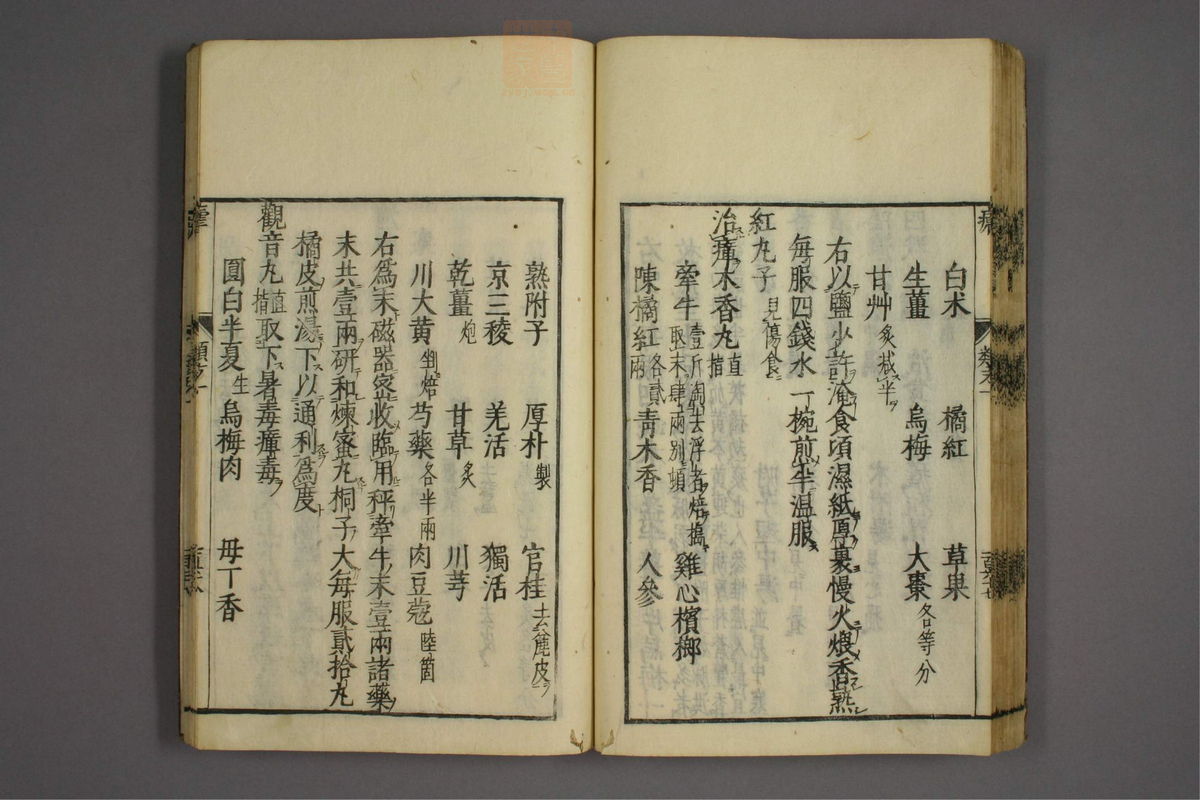 白术　橘紅　草果
生薑　烏梅　大棗各等分
甘艸炙减半
右以鹽少許淹食頃濕紙厚裹慢火煨香熟
每服四錢水一椀煎半温服
紅丸子見傷食
治瘴木香丸直指
牽牛壹斤淘去浮者焙搗取末肆兩別頓　雞心檳榔
陳橘紅各貳兩　青木香　人參
熟附子　厚朴製　官桂去麁皮
京三稜　羌活　獨活
乾薑炮　甘草炙　川芎
川大黄剉焙　芍藥各半兩　肉豆蔻陸箇
右爲末磁器宻收臨用秤牽牛末壹兩諸藥
末共壹兩研和煉蜜丸桐子大每服貳拾丸
橘皮煎湯下以通利爲度
觀音丸直指取下暑毒瘴毒
圓白半夏生　烏梅肉　母丁香